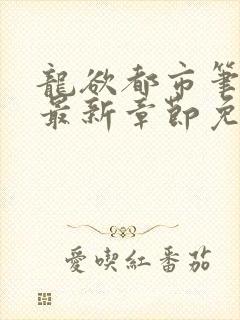 龍欲都市筆
最新章節免
愛喫紅番茄